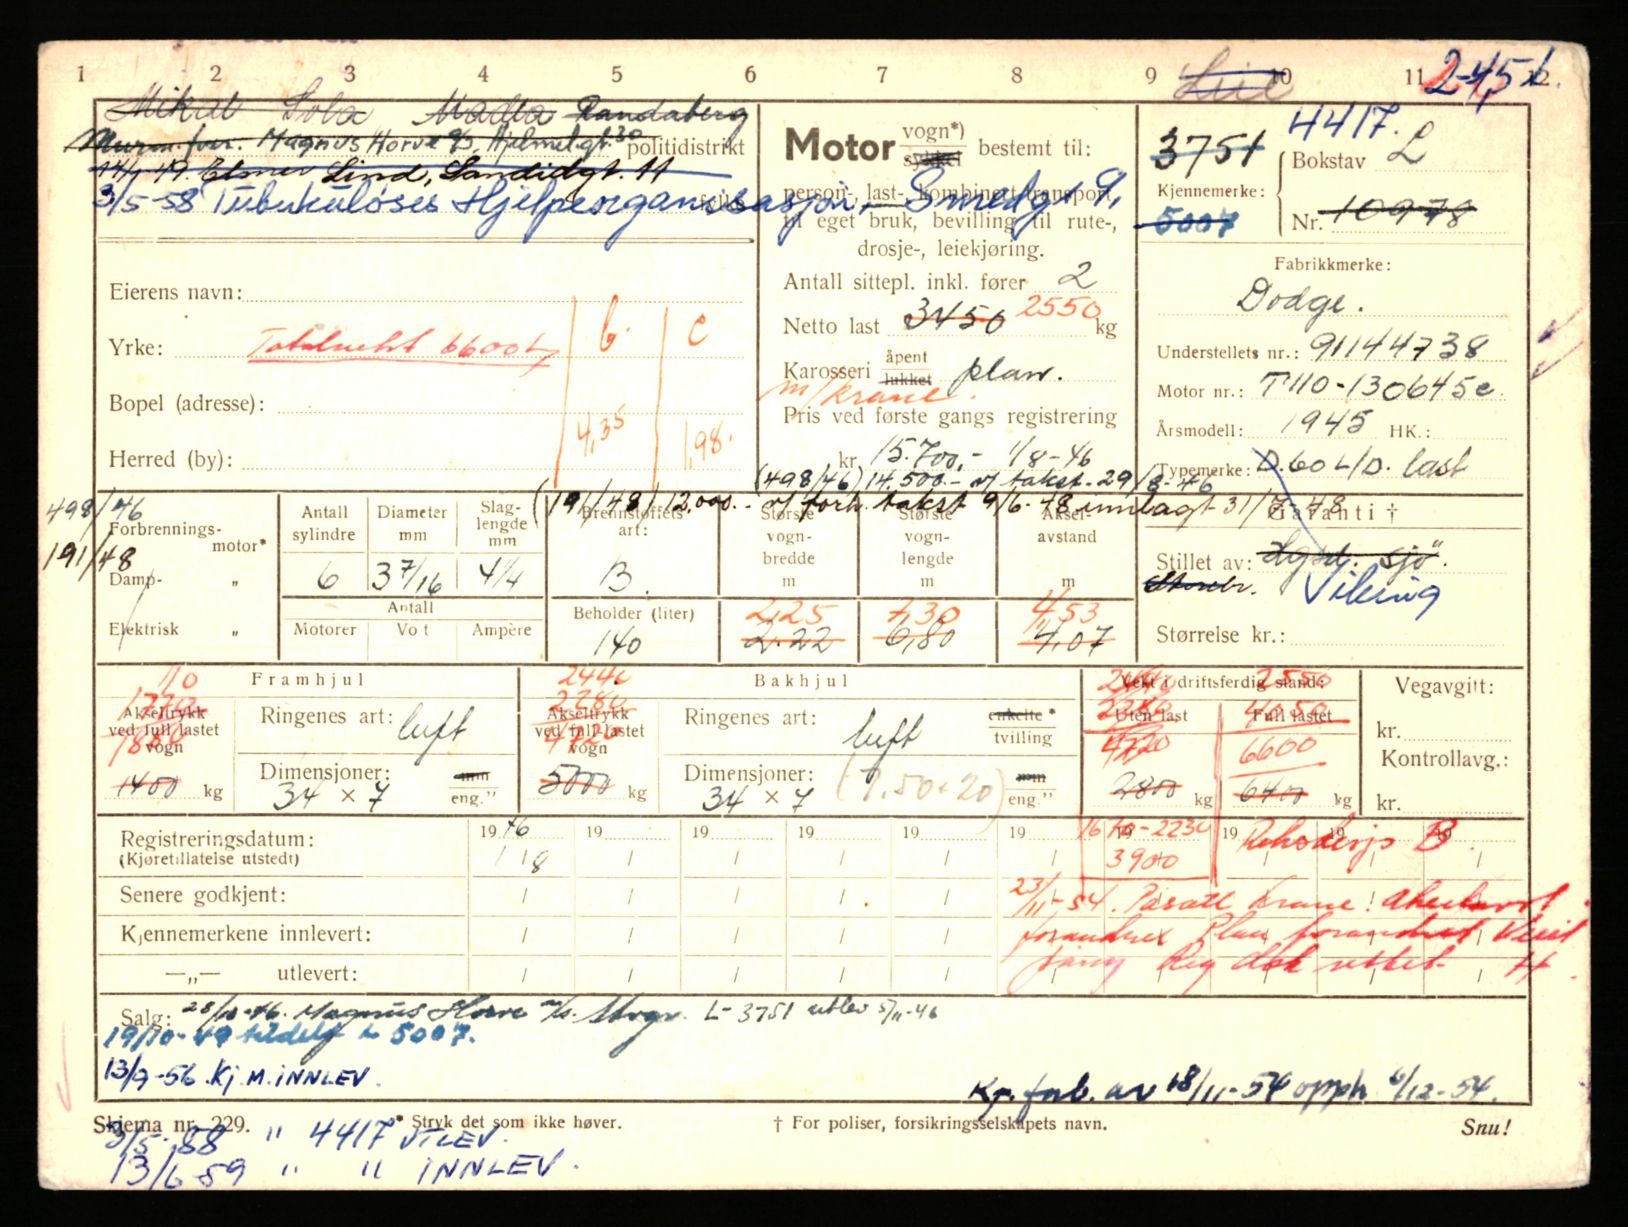 1 2 3 4 5 6 7 8 9 10 11 12
2-45 L.
Mikal Sola Madla Randaberg
Murm. forr. Magnus Horve A/S, Hjelmelgt. 30 politidistrikt
14/1-49 Elmer Lind, Sandidgt. 11
3/5-58 Tuberkuløses Hjelpeorganisasjon, Smedgt 9,
Eierens navn:
Yrke: Totalvekt 6600
Bopel (adresse):
Herred (by):
b. c
4,35 1,98.
Motor vogn*) sykkel bestemt til:
person-, last-, kombinert transport,
til eget bruk, bevilling til rute-,
drosje-, leiekjøring.
Antall sittepl. inkl. fører 2
Netto last 3450 2550 kg
Karosseri åpent lukket plan.
m/krane.
Pris ved første gangs registrering
kr. 15.700,- 1/8-46
(498/46) 14.500.- v/ takst. 29/8-46
(191/48) 12.000.- v/ forh. takst 9/6-48 innlagt 31/7-48
3751 4417.
Bokstav L
Kjennemerke:
5007 Nr. 10978
Fabrikkmerke:
Dodge.
Understellets nr.: 91144738
Motor nr.: T110-130645c.
Årsmodell: 1945 HK.:
Typemerke: D.60 L/D. last
Garanti †
Stillet av: sjö.
Storebr. Viking
Størrelse kr.:
498/46
191/48
Forbrennings-motor*
Damp- „
Elektrisk „
Antall sylindre 6
Diameter mm 3 7/16
Slaglengde mm 4 1/4
Antall
Motorer Volt Ampère
Brennstoffets art: B.
Beholder (liter) 140
Største vognbredde m 2,25 2.22
Største vognlengde m 7,30 6,80
Akselavstand m 4,53 4,07
Framhjul
110
1770
Akseltrykk ved full lastet vogn
1880
1400 kg
Ringenes art: luft
Dimensjoner: 34 x 7 mm eng."
Bakhjul
2440
2280
Akseltrykk ved full lastet vogn
4720
5000 kg
Ringenes art: luft enkelte * tvilling
Dimensjoner: 34 x 7 (7.50 x 20) mm eng."
Vekt i driftsferdig stand:
Uten last Full lastet
2280 4050
4720 6600
2800 kg 6400 kg
2550
Vegavgift:
kr.
Kontrollavg.:
kr.
Registreringsdatum: 1946 19 19 19 19 19 19 19 19
(Kjøretillatelse utstedt) 1/8
3900
Senere godkjent:
Kjennemerkene innlevert:
—„— utlevert:
23/11-54. Påsatt krane! Akselavst.
forandret Plan forandret Vekt
Reg dok rettet
Salg: 28/10-46. Magnus Horve A/S. Stvgr. L-3751 utlev 5/11-46
19/10-49 tildelt L 5007.
13/9-56 Kj.M. INNLEV.
Kj. forb. av 18/11-54 opph. 6/12-54.
Skjema nr. 229. * Stryk det som ikke høver. † For poliser, forsikringsselskapets navn. Snu!
3/5-58 " 4417 UTLEV.
13/6 59 " " INNLEV.